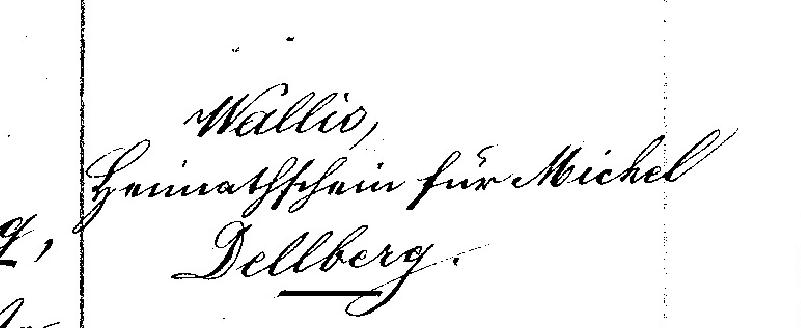 Wallis,
Heimathschein für Michel
Dellberg.